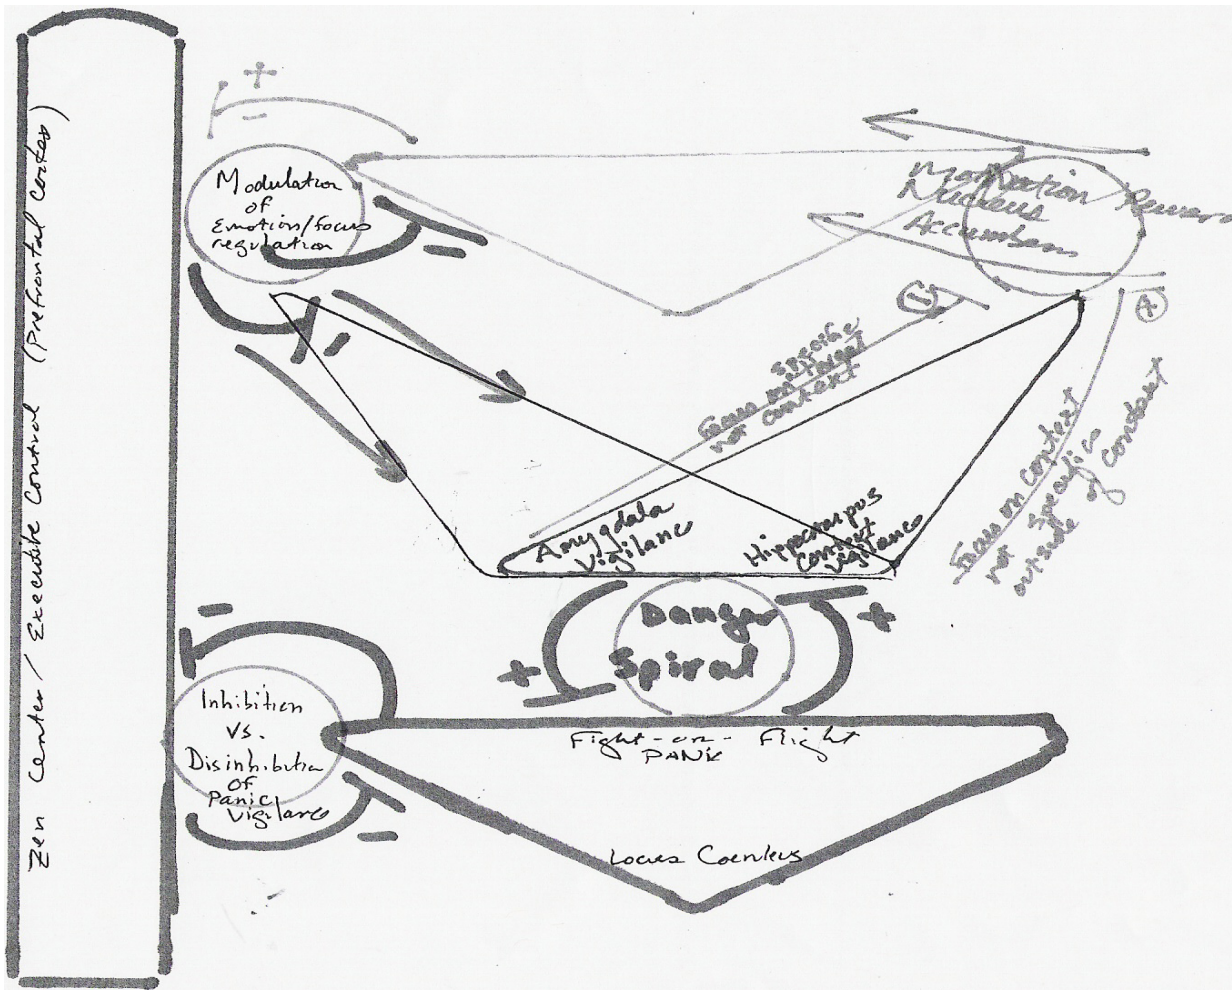 Zen Center / Executive Control (Prefrontal cortex)
+
-
Modulation
of
Emotion/focus
regulation
-
-
Motivation Reward
Nucleus
Accumbens
(-)
(+)
Specific
Focus on Target
not context
Focus on context
not specific
outside of context
Amygdala
Vigilanc
Hippocampus
Context
Vigilance
Danger
Spiral
+
+
-
Inhibition
vs.
Disinhibition
of
Panic
Vigilance
-
Fight-or-Flight
PANIC
Locus Coeruleus